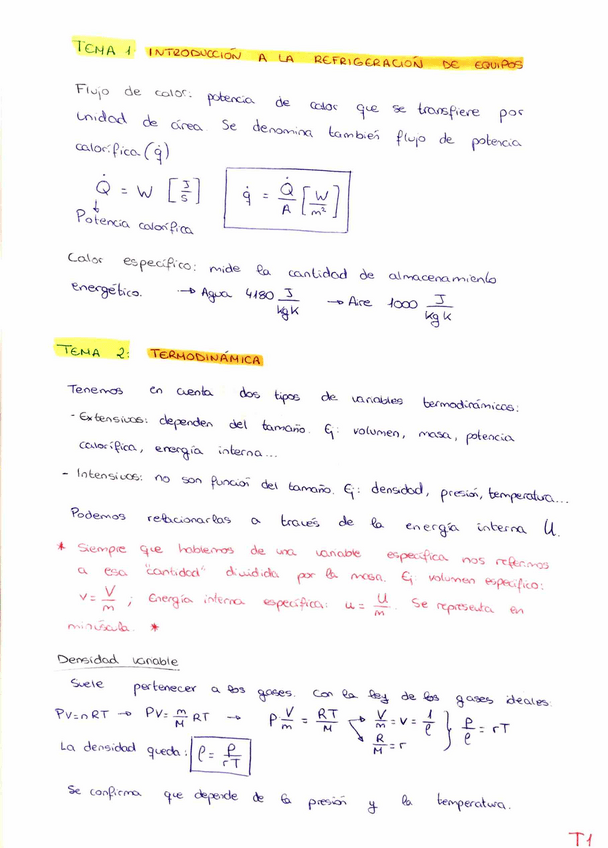 TEMA 1: INTRODUCCIÓN A LA REFRIGERACIÓN DE EQUIPOS
Flujo de calor: potencia de calor que se transfiere por
unidad de área. Se denomina también flujo de potencia
calorífica (q̇)
Q̇ = W [J/s] q̇ = Q̇/A [W/m²]
↓
Potencia calorífica
Calor específico: mide la cantidad de almacenamiento
energético. → Agua 4180 J/kgK → Aire 1000 J/kgK
TEMA 2: TERMODINÁMICA
Tenemos en cuenta dos tipos de variables termodinámicas:
- Extensivas: dependen del tamaño. Ej: volumen, masa, potencia
calorífica, energía interna...
- Intensivas: no son función del tamaño. Ej: densidad, presión, temperatura...
Podemos relacionarlas a través de la energía interna U.
* Siempre que hablemos de una variable específica nos referimos
a esa "cantidad" dividida por la masa. Ej volumen específico:
v = V/m ; Energía interna específica: u = U/m. Se representa en
minúscula. *
Densidad variable
Suele pertenecer a los gases. Con la ley de los gases ideales:
PV=nRT → PV = m/M RT → P V/m = RT/M → V/m = v = 1/ρ } P/ρ = rT
R/M = r
La densidad queda: ρ = P/rT
Se confirma que depende de la presión y la temperatura.
T1